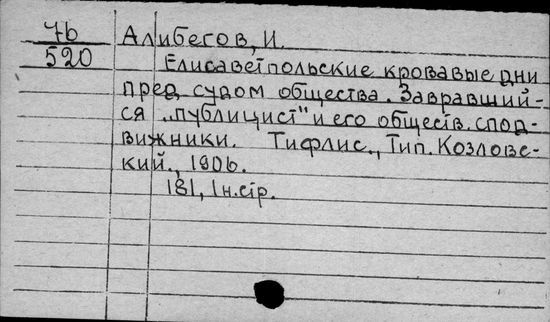 7б Алибегов, И.
520 Елисаветпольские кровавые дни
пред судом общества. Завравший-
ся „публицист" и его обществ. спод-
вижники. Тифлис., Тип. Козловс-
кий., 1906.
181, 1 н. стр.